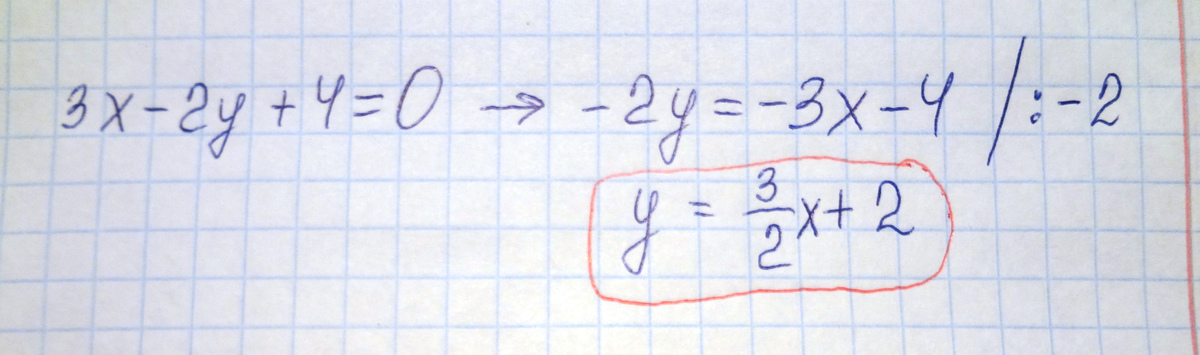 3x-2y+4=0 → -2y=-3x-4 /:-2
y = 3/2 x+2